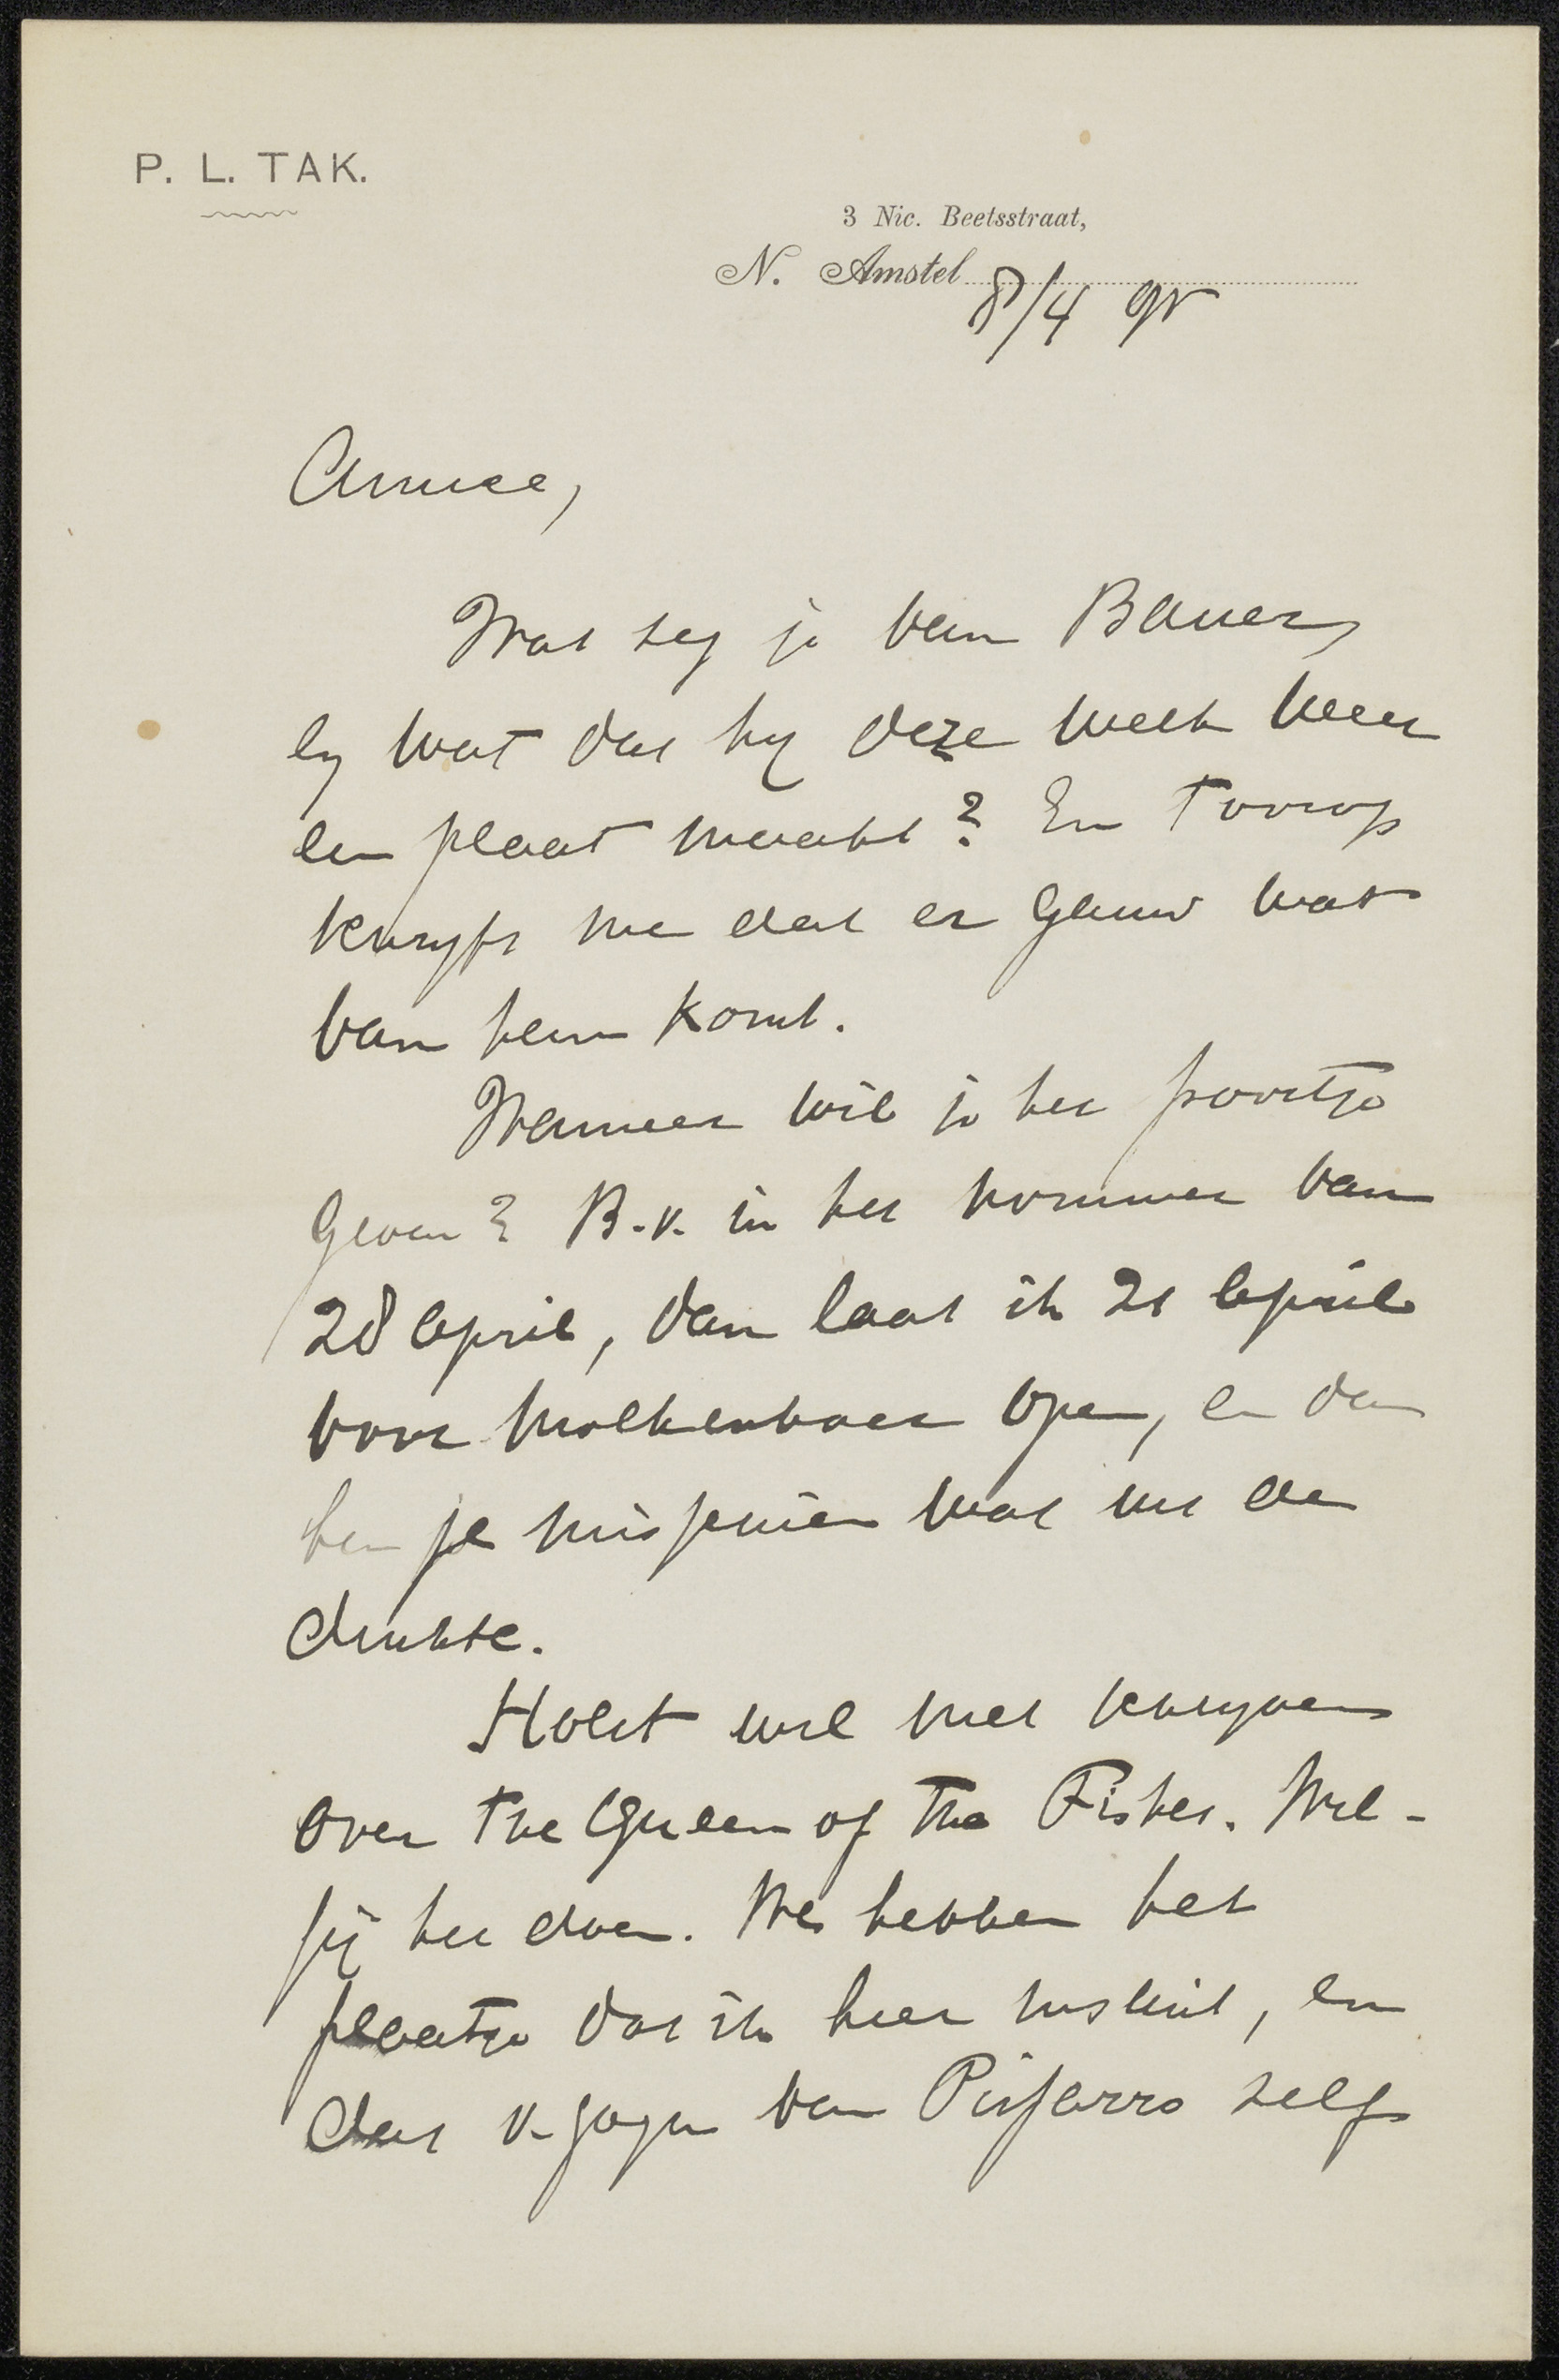 P. L. TAK.
3 Nic. Beetsstraat,
N. Amstel 8/4 95
Amice,
Wat zeg je van Bauer,
en wat dat hij deze week weer
een plaat maakt? En Toorop
schryft me dat er gauw wat
van hem komt.
Wanneer wil je het poortje
geven? B.v. in het nommer van
28 April, dan laat ik 21 April
voor Molkenboer open, en dan
ben je misschien wat uit de
drukte.
Holst wil niet schryven
over The Queen of the Fishes. Wil
jij het doen. We hebben het
plaatje dat ik hier insluit, en
dat v. Gogh van Pissarro zelf